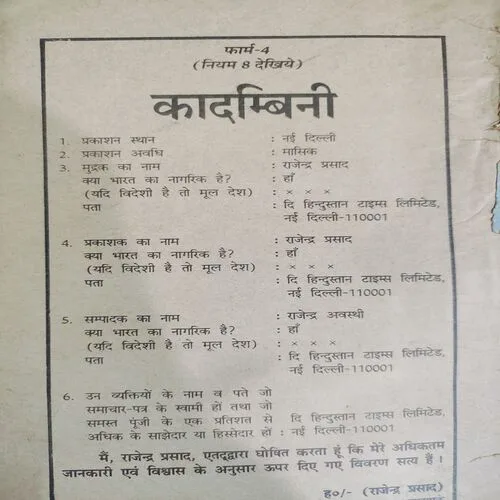 फार्म-4
( नियम 8 देखिये )
कादम्बिनी
1. प्रकाशन स्थान : नई दिल्ली
2. प्रकाशन अवधि : मासिक
3. मुद्रक का नाम : राजेन्द्र प्रसाद
क्या भारत का नागरिक है? : हाँ
(यदि विदेशी है तो मूल देश) : × × ×
पता : दि हिन्दुस्तान टाइम्स लिमिटेड,
नई दिल्ली-110001
4. प्रकाशक का नाम : राजेन्द्र प्रसाद
क्या भारत का नागरिक है? : हाँ
(यदि विदेशी है तो मूल देश) : × × ×
पता : दि हिन्दुस्तान टाइम्स लिमिटेड,
नई दिल्ली-110001
5. सम्पादक का नाम : राजेन्द्र अवस्थी
क्या भारत का नागरिक है? : हाँ
(यदि विदेशी है तो मूल देश) : × × ×
पता : दि हिन्दुस्तान टाइम्स लिमिटेड,
नई दिल्ली-110001
6. उन व्यक्तियों के नाम व पते जो
समाचार-पत्र के स्वामी हों तथा जो
समस्त पूंजी के एक प्रतिशत से दि हिन्दुस्तान टाइम्स लिमिटेड,
अधिक के साझेदार या हिस्सेदार हों : नई दिल्ली-110001
मैं, राजेन्द्र प्रसाद, एतद्द्वारा घोषित करता हूं कि मेरे अधिकतम
जानकारी एवं विश्वास के अनुसार ऊपर दिए गए विवरण सत्य हैं ।
ह०/- (राजेन्द्र प्रसाद)